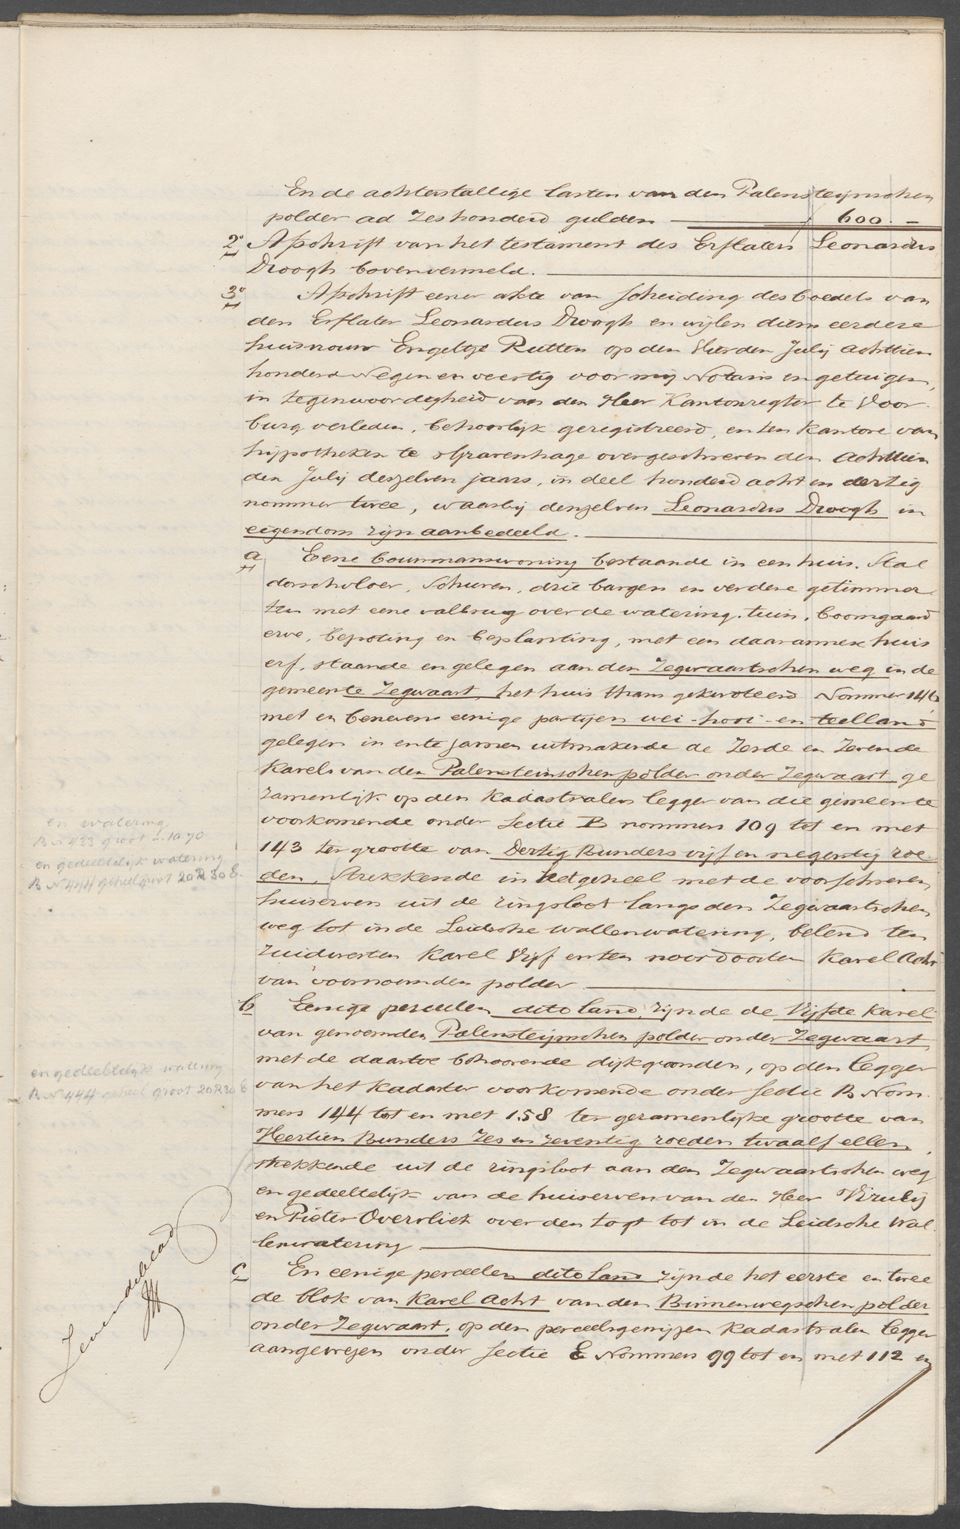 En de achterstallige lasten van den Palensteijnschen
polder ad Zeshonderd gulden 600.–
2° Afschrift van het testament des Erflaters Leonardus
Droogh bovenvermeld.
3° Afschrift eener akte van scheiding des boedels van
den Erflater Leonardus Droogh en wijlen diens eerdere
huisvrouw Engeltje Rutten op den Vierden Julij achttien
honderd Negen en veertig voor mij Notaris en getuigen,
in tegenwoordigheid van den Heer Kantonregter te Voor-
burg verleden, behoorlijk geregistreerd, en ten kantore van
hijpotheken te s'Gravenhage overgeschreven den Achttien
den Julij deszelven jaars, in deel honderd acht en dertig
nommer twee, waarbij denzelven Leonardus Droogh in
eigendom zijn aanbedeeld.
a Eene bouwmanswoning bestaande in een huis, Stal
dorschvloer, Schuren, drie bargen en verdere getimmer
ten met eene valbrug over de watering, tuin, boomgaard
erve, bepoting en beplanting, met een daarannex huis
erf, staande en gelegen aan den Zegwaartschen weg in de
gemeente Zegwaart het huis thans gekwoteerd Nommer 146
met en benevens eenige partijen wei- hooi- en teelland
gelegen in en te zamen uitmakende de Zesde en Zevende
Karels van den Palensteinschen polder onder Zegwaart ge
zamenlijk op den Kadastralen legger van die gemeente
voorkomende onder Sectie B nommers 109 tot en met
143 ter grootte van Dertig Bunders vijf en negentig roe-
den, Strekkende in het geheel met de voorschreven
huiserven uit de ringsloot langs den Zegwaartschen
weg tot in de Leidsche wallenwatering, belend ten
Zuidwesten Karel Vijf en ten noordoosten Karel Acht
van voornoemden polder
b Eenige perceelen dito land, zijnde de Vijfde Karel
van genoemden Palensteijnschen polder onder Zegwaart
met de daartoe behoorende dijkgronden, op den legger
van het Kadaster voorkomende onder Sectie B Nom-
mers 144 tot en met 158 ter gezamenlijke grootte van
Veertien Bunders Zes en Zeventig roeden twaalf ellen,
strekkende uit de ringsloot aan den Zegwaartschen weg
en gedeeltelijk van de huiserven van den Heer Viruly
en Pieter Overvliet over den togt tot in de Leidsche wal
lenwatering
c En eenige perceelen dito land zijnde het eerste en twee
de blok van Karel Acht van den Binnenwegschen polder
onder Zegwaart, op den perceelsgewijzen Kadastralen legger
aangewezen onder Sectie E Nommers 99 tot en met 112 en
en watering
B N 433 groot 10 70
en gedeeltelijk watering
B N 444 geheel groot 20 R 30 E.
en gedeeltelijk watering
B N 444 geheel groot 20 R 30 E
Zevendeblad